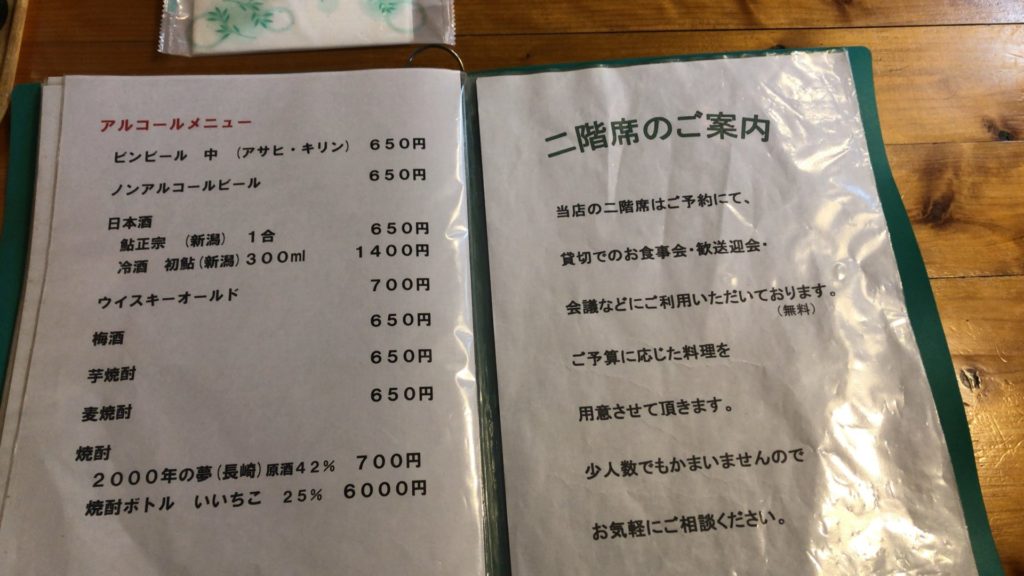 アルコールメニュー
ビンビール 中 (アサヒ・キリン) 650円
ノンアルコールビール 650円
日本酒
鮎正宗 (新潟) 1合 650円
冷酒 初鮎(新潟)300ml 1400円
ウイスキーオールド 700円
梅酒 650円
芋焼酎 650円
麦焼酎 650円
焼酎
2000年の夢(長崎)原酒42% 700円
焼酎ボトル いいちこ 25% 6000円
二階席のご案内
当店の二階席はご予約にて、
貸切でのお食事会・歓送迎会・
会議などにご利用いただいております。
(無料)
ご予算に応じた料理を
用意させて頂きます。
少人数でもかまいませんので
お気軽にご相談ください。